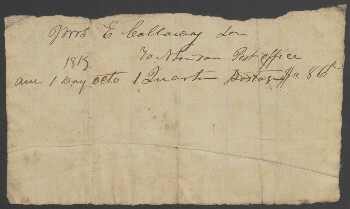 Mrs E Callaway Dr
1819 To Post office
1 Day Octo 1 Quarter Postage $" 86